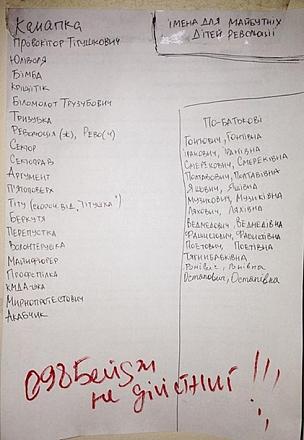 Канапка
Провокtор Тітушкович
Юліволя
Бімба
Кріштік
Біломолот Трузубович
Тризубка
Революція (ж), Рево(ч)
Сектор
Сектораф
Аргумент
П'ятоповерх
Тіту (скороч. від „Тітушка")
Беркутя
Перепустка
Волонтерушка
Майнфюрер
Профспілка
КМДАшка
Мирнопротестович
Акабчик
Імена для майбутніх
дітей революції
По-батькові
Гонтович, Гонтівна
Смерекович, Смереківна
Полтавович, Полтавівна
Яшович, Яшівна
Музикович, Музиківна
Ляхович, Ляхівна
Ведмедович, Ведмедівна
Фашистович, Фашистівна
Поетович, Поетівна
Тягнибаківна
Внівна
Остапович, Остапівна
0985 Бейдж
не дійсний !!!